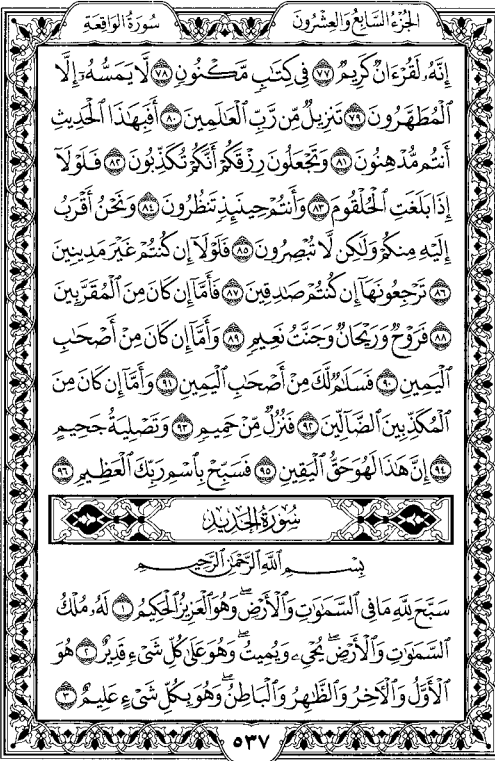 الجزء السابع والعشرون
سورة الواقعة
إِنَّهُۥ لَقُرْءَانٌ كَرِيمٌ ٧٧ فِى كِتَٰبٍ مَّكْنُونٍ ٧٨ لَّا يَمَسُّهُۥٓ إِلَّا
ٱلْمُطَهَّرُونَ ٧٩ تَنزِيلٌ مِّن رَّبِّ ٱلْعَٰلَمِينَ ٨٠ أَفَبِهَٰذَا ٱلْحَدِيثِ
أَنتُم مُّدْهِنُونَ ٨١ وَتَجْعَلُونَ رِزْقَكُمْ أَنَّكُمْ تُكَذِّبُونَ ٨٢ فَلَوْلَآ
إِذَا بَلَغَتِ ٱلْحُلْقُومَ ٨٣ وَأَنتُمْ حِينَئِذٍ تَنظُرُونَ ٨٤ وَنَحْنُ أَقْرَبُ
إِلَيْهِ مِنكُمْ وَلَٰكِن لَّا تُبْصِرُونَ ٨٥ فَلَوْلَآ إِن كُنتُمْ غَيْرَ مَدِينِينَ
٨٦ تَرْجِعُونَهَآ إِن كُنتُمْ صَٰدِقِينَ ٨٧ فَأَمَّآ إِن كَانَ مِنَ ٱلْمُقَرَّبِينَ
٨٨ فَرَوْحٌ وَرَيْحَانٌ وَجَنَّتُ نَعِيمٍ ٨٩ وَأَمَّآ إِن كَانَ مِنْ أَصْحَٰبِ
ٱلْيَمِينِ ٩٠ فَسَلَٰمٌ لَّكَ مِنْ أَصْحَٰبِ ٱلْيَمِينِ ٩١ وَأَمَّآ إِن كَانَ مِنَ
ٱلْمُكَذِّبِينَ ٱلضَّآلِّينَ ٩٢ فَنُزُلٌ مِّنْ حَمِيمٍ ٩٣ وَتَصْلِيَةُ جَحِيمٍ
٩٤ إِنَّ هَٰذَا لَهُوَ حَقُّ ٱلْيَقِينِ ٩٥ فَسَبِّحْ بِٱسْمِ رَبِّكَ ٱلْعَظِيمِ ٩٦
سورة الحديد
بِسْمِ ٱللَّهِ ٱلرَّحْمَٰنِ ٱلرَّحِيمِ
سَبَّحَ لِلَّهِ مَا فِى ٱلسَّمَٰوَٰتِ وَٱلْأَرْضِۖ وَهُوَ ٱلْعَزِيزُ ٱلْحَكِيمُ ١ لَهُۥ مُلْكُ
ٱلسَّمَٰوَٰتِ وَٱلْأَرْضِۖ يُحْىِۦ وَيُمِيتُۖ وَهُوَ عَلَىٰ كُلِّ شَىْءٍ قَدِيرٌ ٢ هُوَ
ٱلْأَوَّلُ وَٱلْءَاخِرُ وَٱلظَّٰهِرُ وَٱلْبَاطِنُۖ وَهُوَ بِكُلِّ شَىْءٍ عَلِيمٌ ٣
٥٣٧